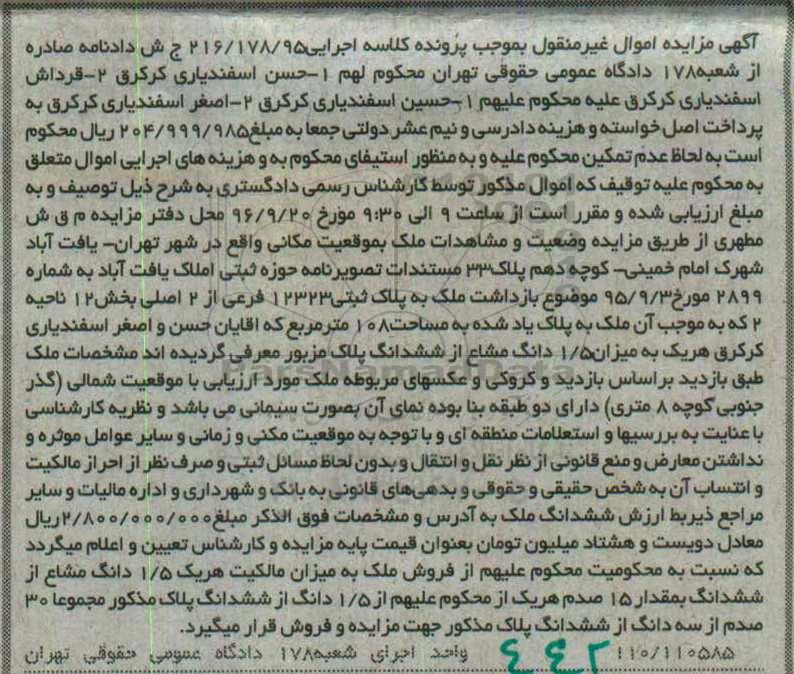 آگهی مزایده اموال غیرمنقول بموجب پرونده کلاسه اجرایی۲۱۶/۱۷۸/۹۵ ج ش دادنامه صادره
از شعبه۱۷۸ دادگاه عمومی حقوقی تهران محکوم لهم ۱-حسن اسفندیاری کرکرق ۲-قرداش
اسفندیاری کرکرق علیه محکوم علیهم ۱-حسین اسفندیاری کرکرق ۲-اصغر اسفندیاری کرکرق به
پرداخت اصل خواسته و هزینه دادرسی و نیم عشر دولتی جمعا به مبلغ۲۰۴/۹۹۹/۹۸۵ ریال محکوم
است به لحاظ عدم تمکین محکوم علیه و به منظور استیفای محکوم به و هزینه های اجرایی اموال متعلق
به محکوم علیه توقیف که اموال مذکور توسط کارشناس رسمی دادگستری به شرح ذیل توصیف و به
مبلغ ارزیابی شده و مقرر است از ساعت ۹ الی ۹:۳۰ مورخ ۹۶/۹/۲۰ محل دفتر مزایده م ق ش
مطهری از طریق مزایده وضعیت و مشاهدات ملک بموقعیت مکانی واقع در شهر تهران- یافت آباد
شهرک امام خمینی- کوچه دهم پلاک۳۳ مستندات تصویرنامه حوزه ثبتی املاک یافت آباد به شماره
۲۸۹۹ مورخ۹۵/۹/۳ موضوع بازداشت ملک به پلاک ثبتی۱۲۳۲۳ فرعی از ۲ اصلی بخش۱۲ ناحیه
۲ که به موجب آن ملک به پلاک یاد شده به مساحت۱۰۸ مترمربع که اقایان حسن و اصغر اسفندیاری
کرکرق هریک به میزان۱/۵ دانگ مشاع از ششدانگ پلاک مزبور معرفی گردیده اند مشخصات ملک
طبق بازدید براساس بازدید و کروکی و عکسهای مربوطه ملک مورد ارزیابی با موقعیت شمالی (گذر
جنوبی کوچه ۸ متری) دارای دو طبقه بنا بوده نمای آن بصورت سیمانی می باشد و نظریه کارشناسی
با عنایت به بررسیها و استعلامات منطقه ای و با توجه به موقعیت مکنی و زمانی و سایر عوامل موثره و
نداشتن معارض و منع قانونی از نظر نقل و انتقال و بدون لحاظ مسائل ثبتی و صرف نظر از احراز مالکیت
و انتساب آن به شخص حقیقی و حقوقی و بدهی‌های قانونی به بانک و شهرداری و اداره مالیات و سایر
مراجع ذیربط ارزش ششدانگ ملک به آدرس و مشخصات فوق الذکر مبلغ۲/۸۰۰/۰۰۰/۰۰۰ریال
معادل دویست و هشتاد میلیون تومان بعنوان قیمت پایه مزایده و کارشناس تعیین و اعلام میگردد
که نسبت به محکومیت محکوم علیهم از فروش ملک به میزان مالکیت هریک ۱/۵ دانگ مشاع از
ششدانگ بمقدار ۱۵ صدم هریک از محکوم علیهم از ۱/۵ دانگ از ششدانگ پلاک مذکور مجموعا ۳۰
صدم از سه دانگ از ششدانگ پلاک مذکور جهت مزایده و فروش قرار میگیرد.
۱۱۰/۱۱۰۵۸۵ ۴۴۲ واحد اجرای شعبه۱۷۸ دادگاه عمومی حقوقی تهران
ParsNamadData